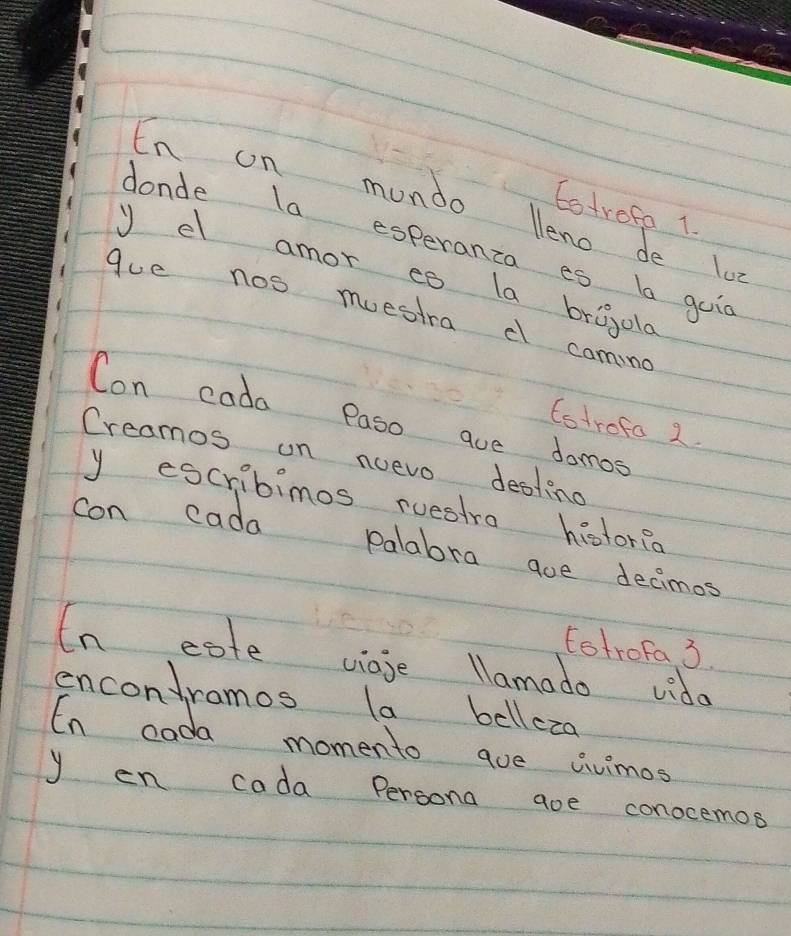 Estrofa 1.
En un mundo lleno de luz
donde la esperanza es la guía
y el amor es la brújula
que nos muestra el camino
Estrofa 2.
Con cada Paso que damos
Creamos un nuevo destino
y escribimos nuestra historia
con cada palabra que decimos
Estrofa 3.
En este viaje llamado vida
encontramos la belleza
En cada momento que vivimos
y en cada Persona que conocemos